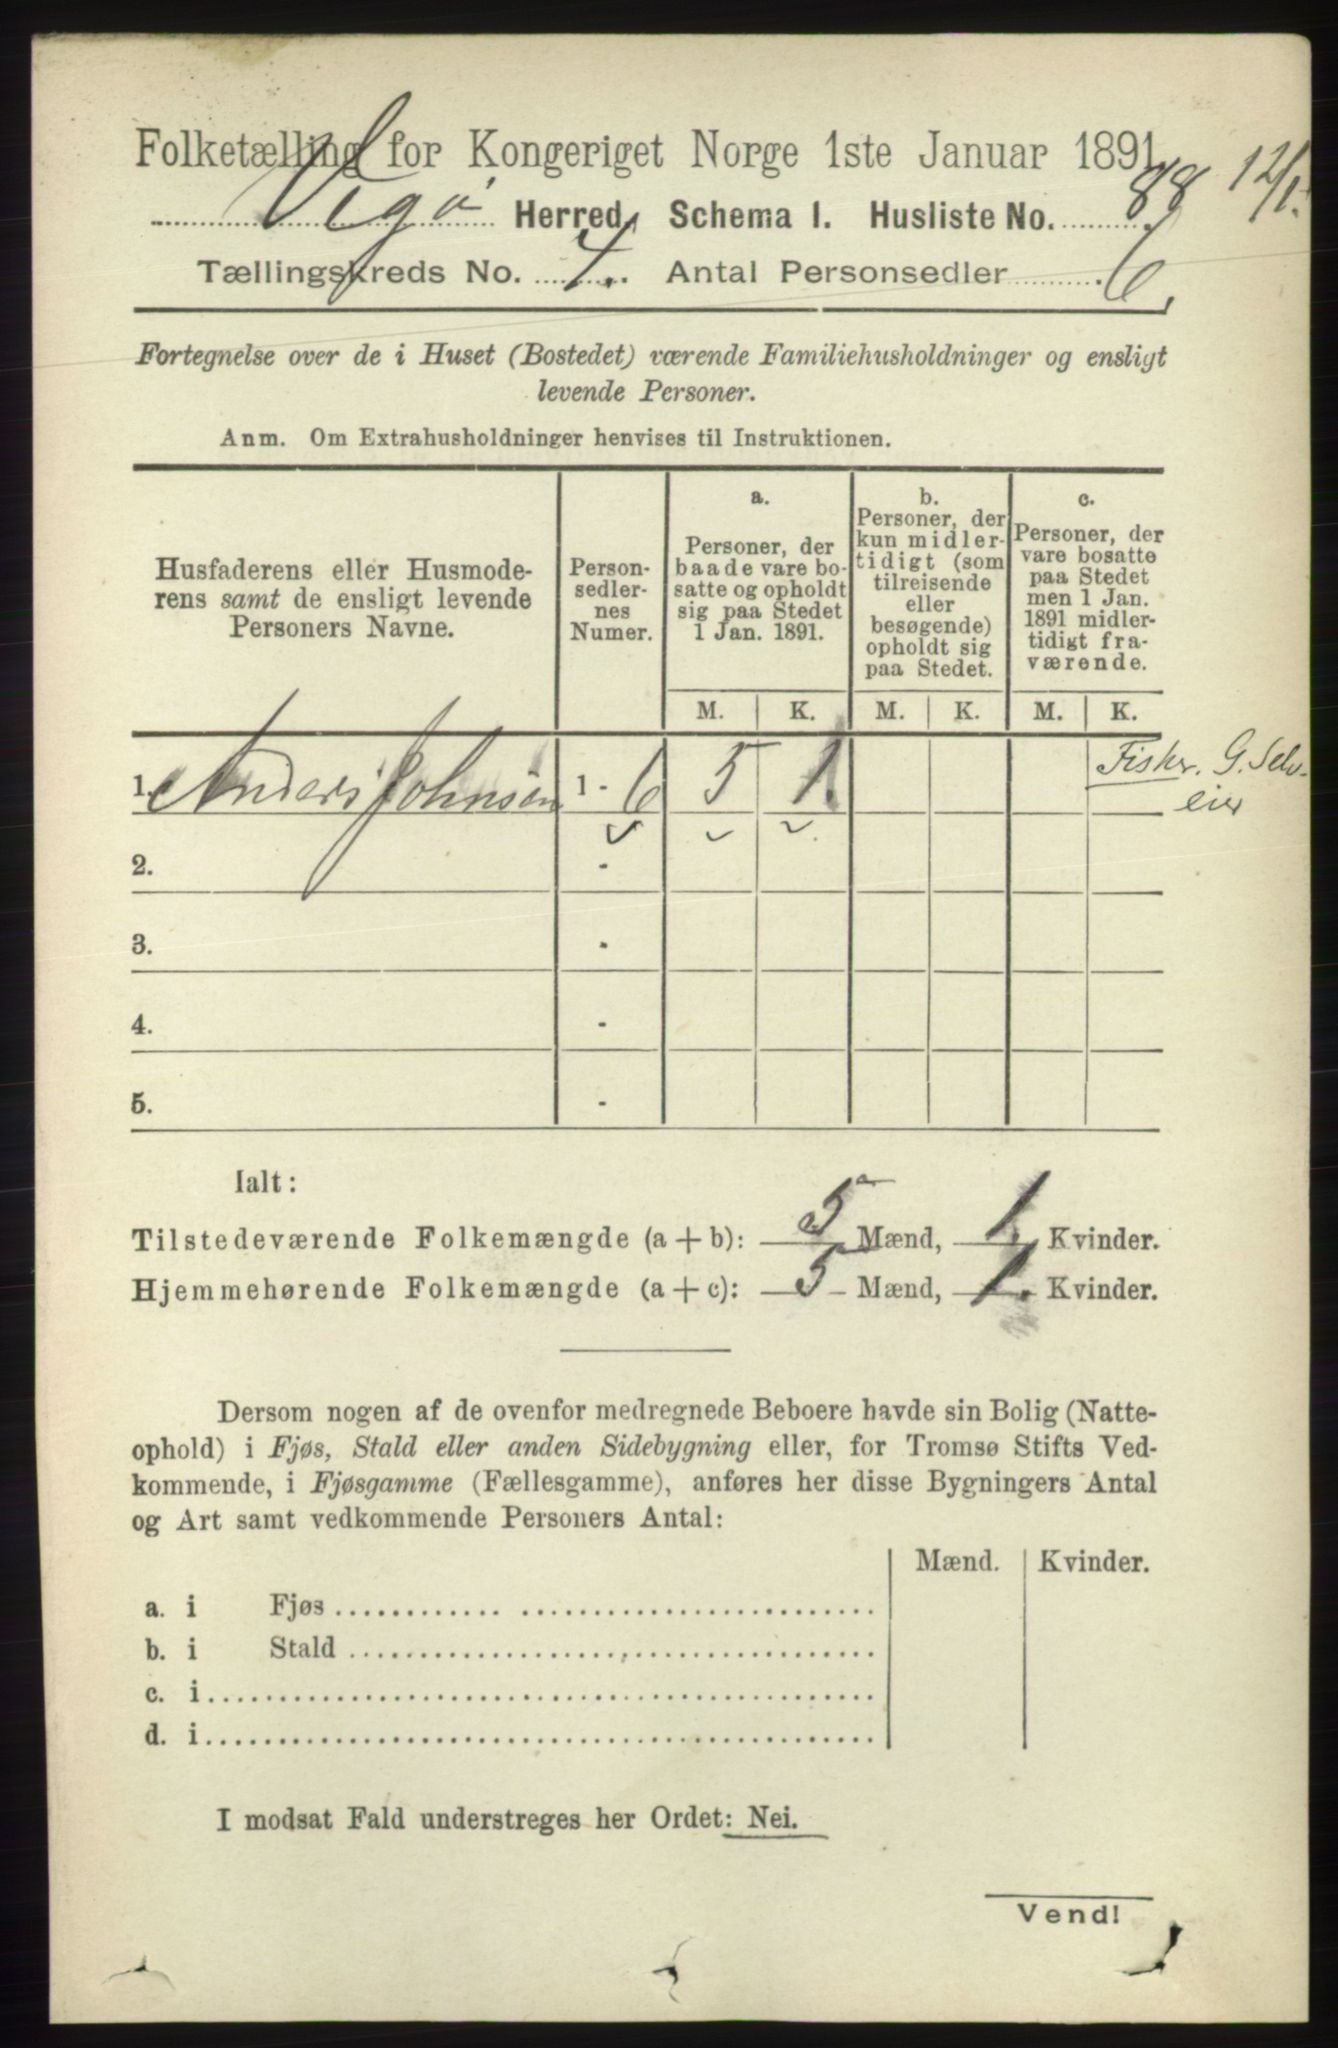 Folketælling for Kongeriget Norge 1ste Januar 1891.
Vegø Herred, Schema I. Husliste No. 88 12/1.
Tællingskreds No. 4. Antal Personsedler 6,
Fortegnelse over de i Huset (Bostedet) værende Familiehusholdninger og ensligt
levende Personer.
Anm. Om Extrahusholdninger henvises til Instruktionen.
Husfaderens eller Husmode-
rens samt de ensligt levende
Personers Navne.
Person-
sedler-
nes
Numer.
a.
Personer, der
baade vare bo-
satte og opholdt
sig paa Stedet
1 Jan. 1891.
b.
Personer, der
kun midler-
tidigt (som
tilreisende
eller
besøgende)
opholdt sig
paa Stedet.
c.
Personer, der
vare bosatte
paa Stedet
men 1 Jan.
1891 midler-
tidigt fra-
værende.
M. K. M. K. M. K.
1. Anders Johnsen 1 - 6 5 1. Fisker. G. Selv-
eier
2. -
3. -
4. -
5. -
Ialt:
Tilstedeværende Folkemængde (a + b): 5 Mænd, 1 Kvinder.
Hjemmehørende Folkemængde (a + c): 5 Mænd, 1. Kvinder.
Dersom nogen af de ovenfor medregnede Beboere havde sin Bolig (Natte-
ophold) i Fjøs, Stald eller anden Sidebygning eller, for Tromsø Stifts Ved-
kommende, i Fjøsgamme (Fællesgamme), anføres her disse Bygningers Antal
og Art samt vedkommende Personers Antal:
Mænd. Kvinder.
a. i Fjøs
b. i Stald
c. i
d. i
I modsat Fald understreges her Ordet: Nei.
Vend!